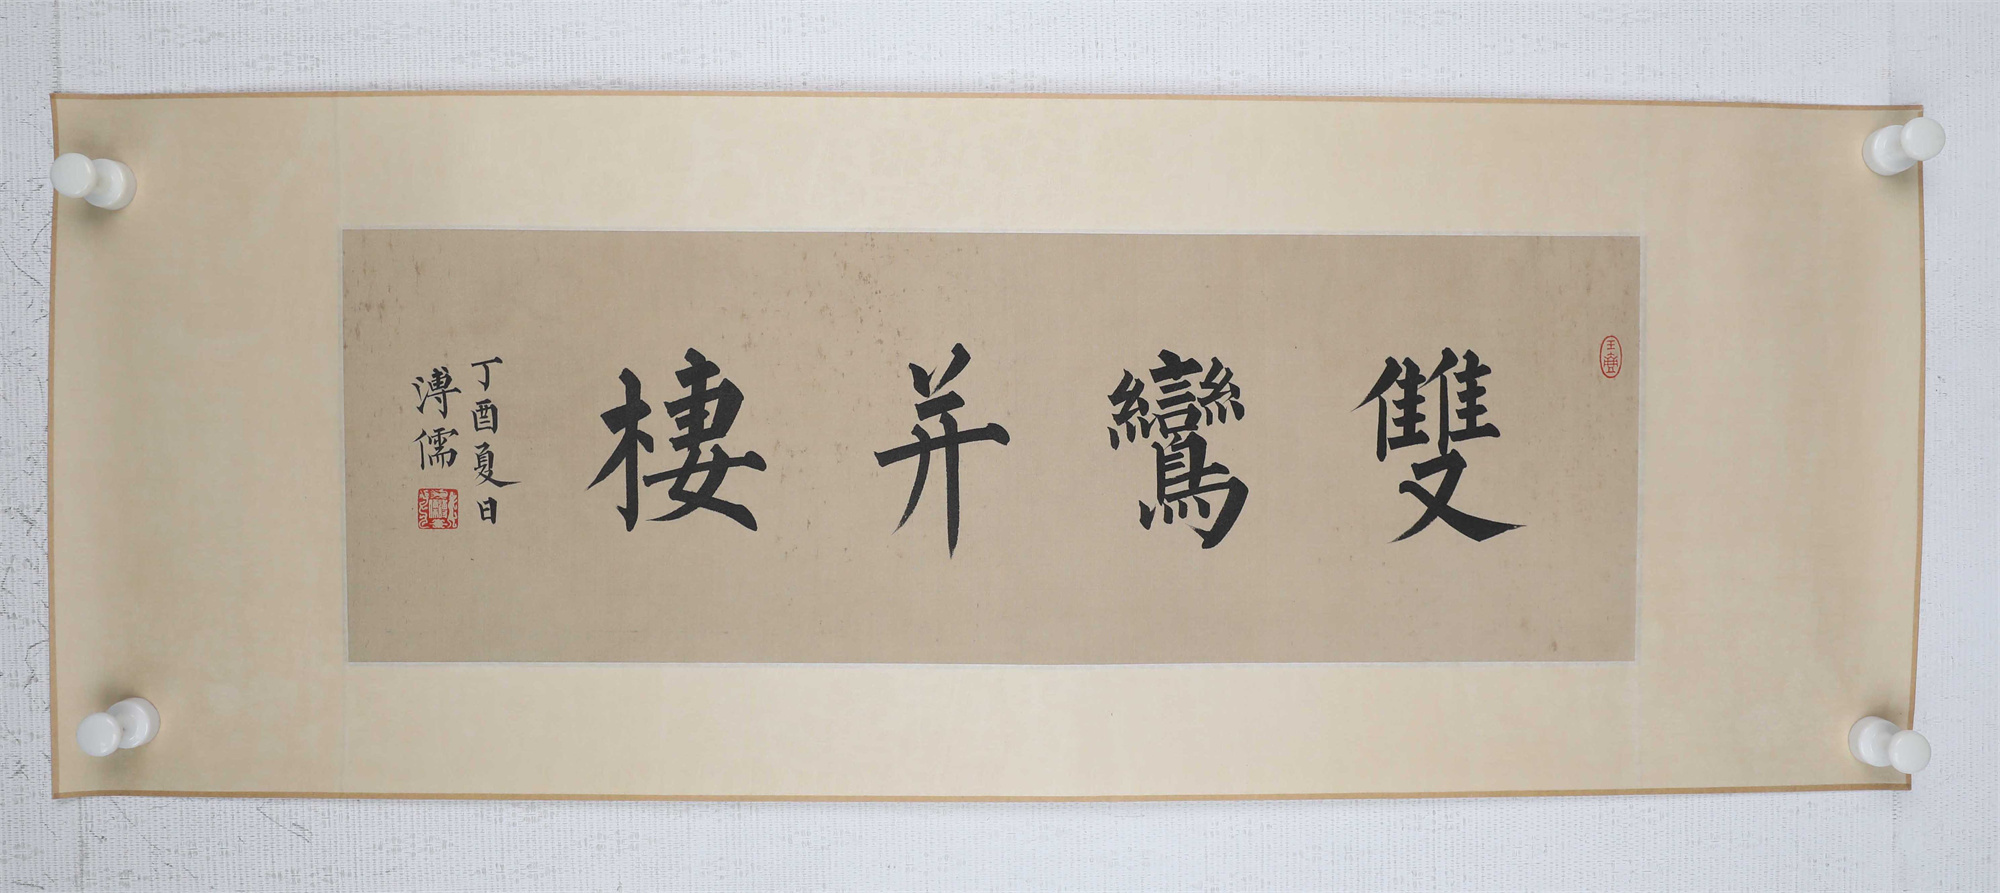 雙鸞并棲
丁酉夏日
溥儒